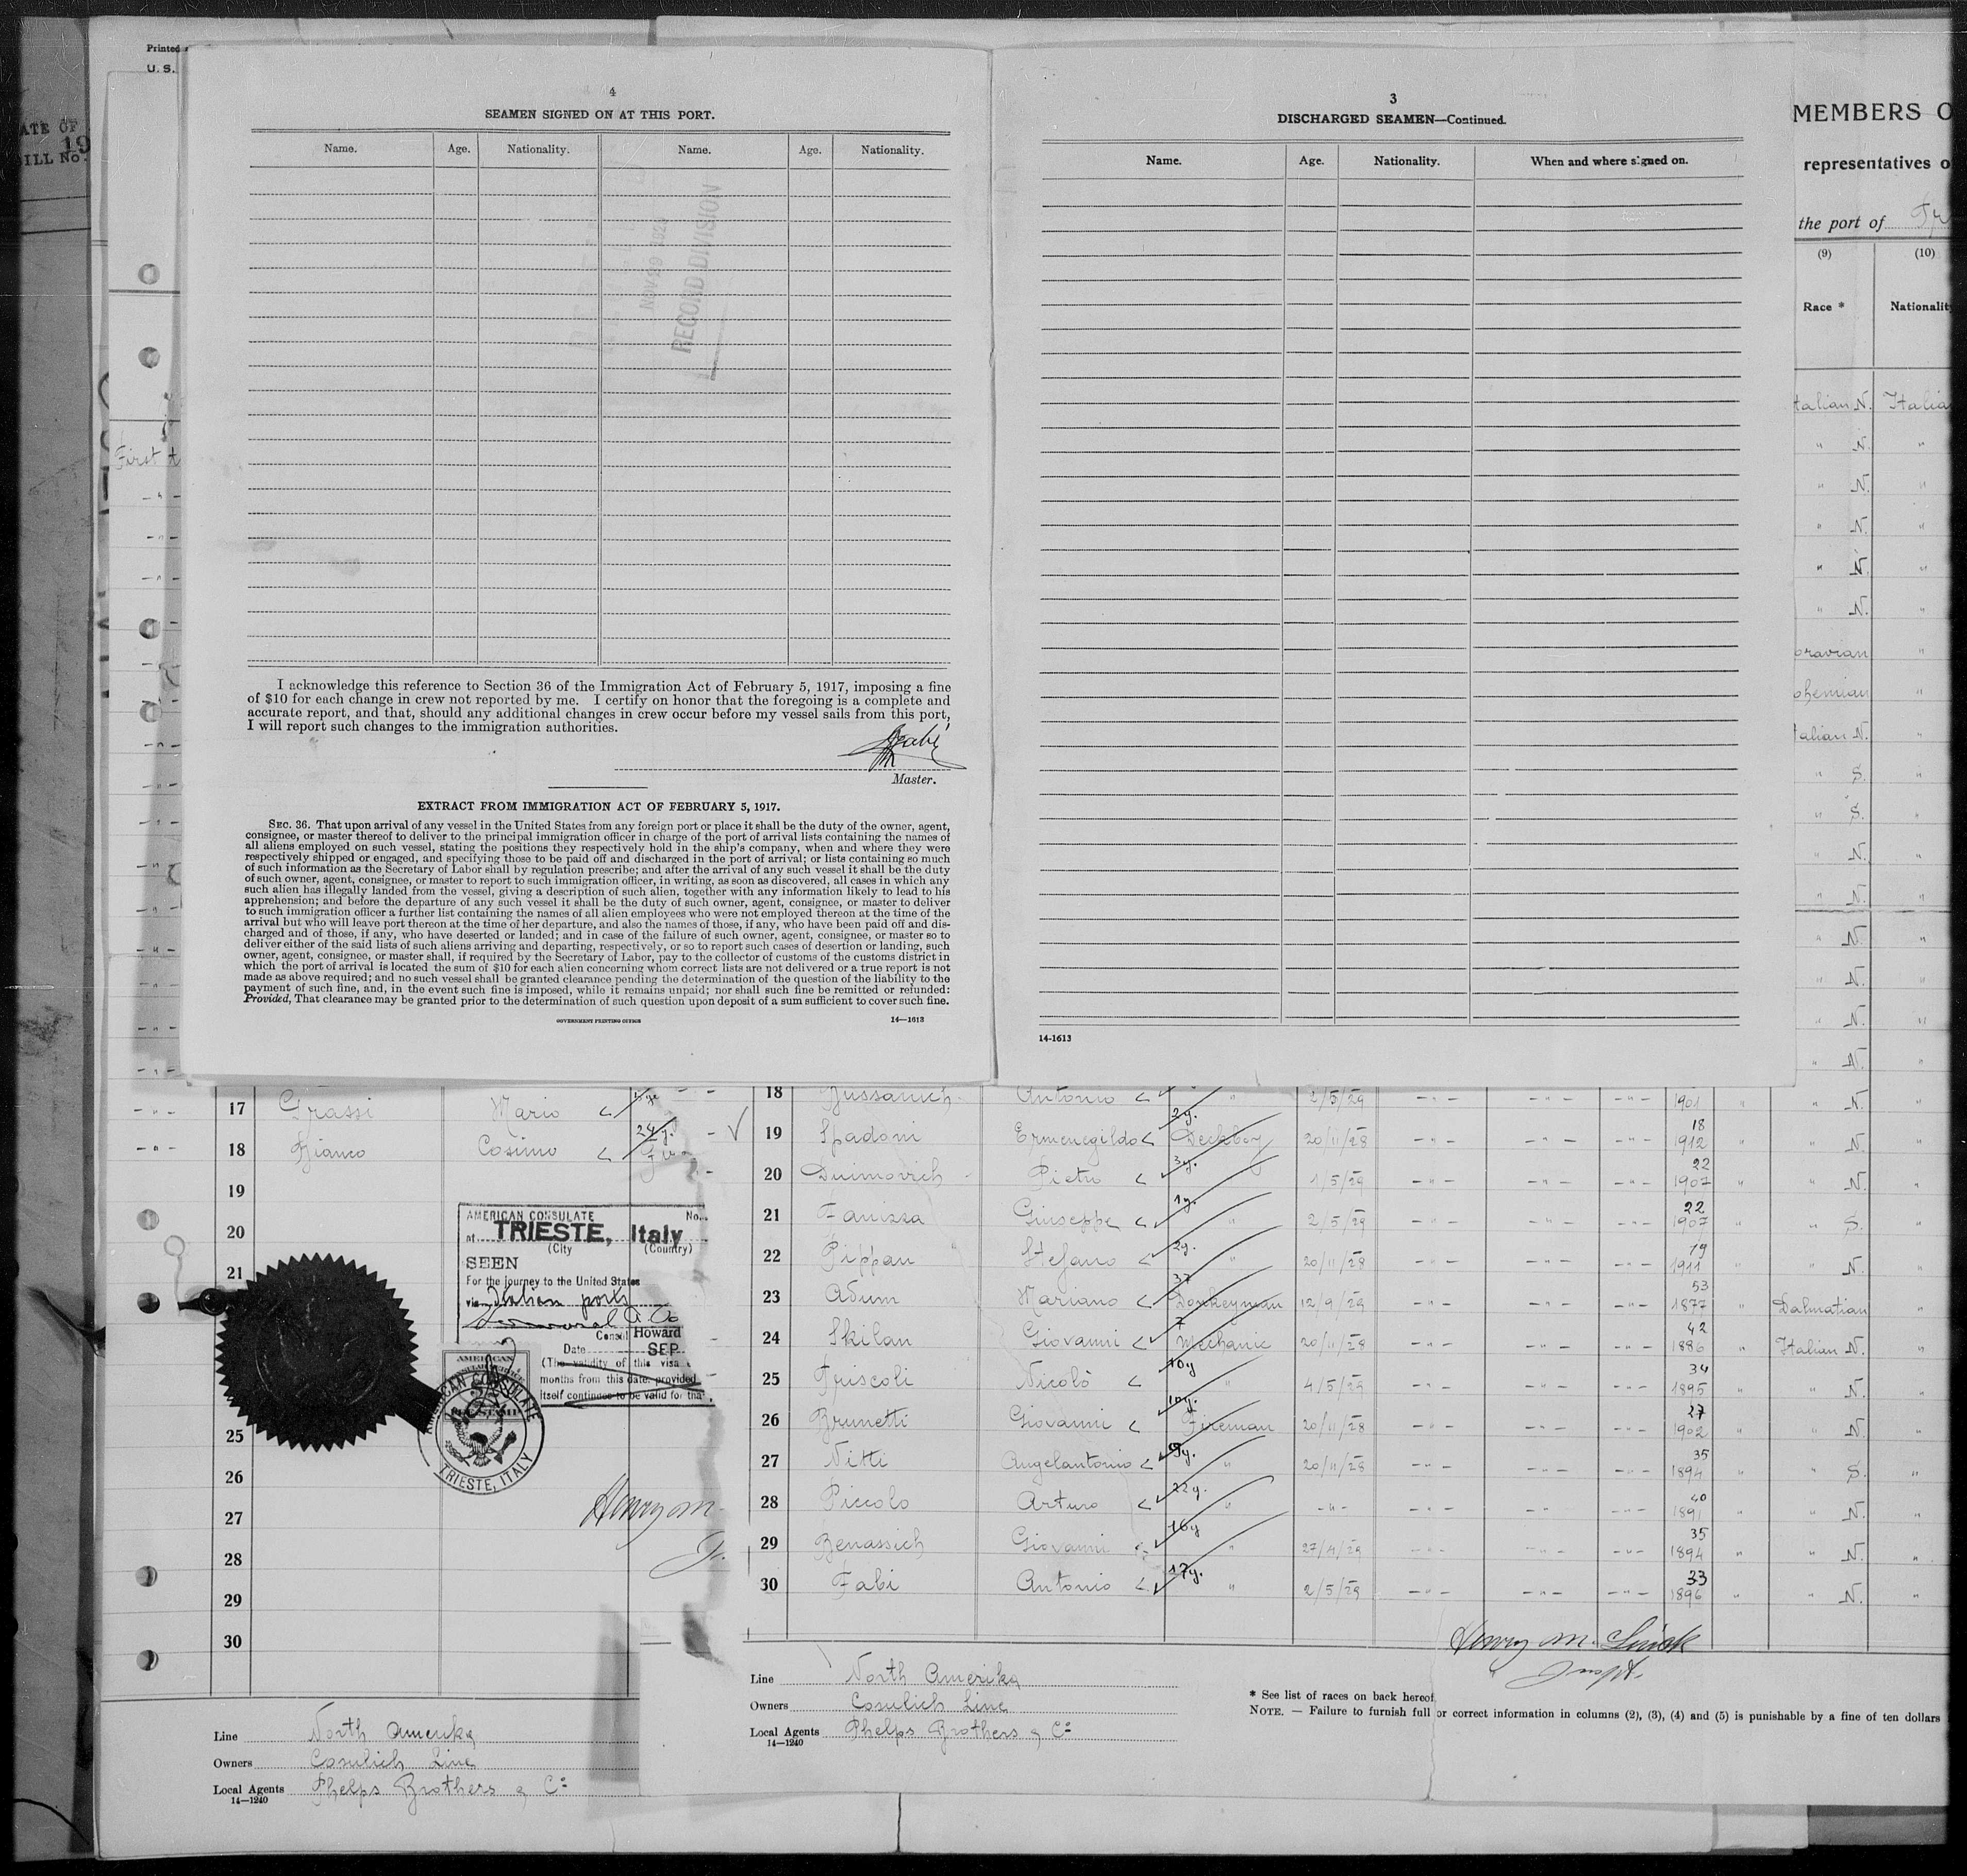 Printed
U. S.
ATE OF
19
ILL No.
4
SEAMEN SIGNED ON AT THIS PORT.
Name. Age. Nationality. Name. Age. Nationality.
NOV 29 1929
RECORD DIVISION
I acknowledge this reference to Section 36 of the Immigration Act of February 5, 1917, imposing a fine
of $10 for each change in crew not reported by me. I certify on honor that the foregoing is a complete and
accurate report, and that, should any additional changes in crew occur before my vessel sails from this port,
I will report such changes to the immigration authorities.
Master.
EXTRACT FROM IMMIGRATION ACT OF FEBRUARY 5, 1917.
SEC. 36. That upon arrival of any vessel in the United States from any foreign port or place it shall be the duty of the owner, agent,
consignee, or master thereof to deliver to the principal immigration officer in charge of the port of arrival lists containing the names of
all aliens employed on such vessel, stating the positions they respectively hold in the ship's company, when and where they were
respectively shipped or engaged, and specifying those to be paid off and discharged in the port of arrival; or lists containing so much
of such information as the Secretary of Labor shall by regulation prescribe; and after the arrival of any such vessel it shall be the duty
of such owner, agent, consignee, or master to report to such immigration officer, in writing, as soon as discovered, all cases in which any
such alien has illegally landed from the vessel, giving a description of such alien, together with any information likely to lead to his
apprehension; and before the departure of any such vessel it shall be the duty of such owner, agent, consignee, or master to deliver
to such immigration officer a further list containing the names of all alien employees who were not employed thereon at the time of the
arrival but who will leave port thereon at the time of her departure, and also the names of those, if any, who have been paid off and dis-
charged and of those, if any, who have deserted or landed; and in case of the failure of such owner, agent, consignee, or master so to
deliver either of the said lists of such aliens arriving and departing, respectively, or so to report such cases of desertion or landing, such
owner, agent, consignee, or master shall, if required by the Secretary of Labor, pay to the collector of customs of the customs district in
which the port of arrival is located the sum of $10 for each alien concerning whom correct lists are not delivered or a true report is not
made as above required; and no such vessel shall be granted clearance pending the determination of the question of the liability to the
payment of such fine, and, in the event such fine is imposed, while it remains unpaid; nor shall such fine be remitted or refunded:
Provided, That clearance may be granted prior to the determination of such question upon deposit of a sum sufficient to cover such fine.
GOVERNMENT PRINTING OFFICE 14—1613
3
DISCHARGED SEAMEN—Continued.
Name. Age. Nationality. When and where signed on.
14-1613
MEMBERS O
representatives o
the port of
(9) (10)
Race * Nationalit
talian N. Italia
" N. "
" N. "
" N. "
" N. "
" N. "
oravian "
ohemian "
talian N. "
" S. "
" S. "
" N. "
" N. "
" N. "
" N. "
" N. "
" N.
First
17 Grassi Mario
18 Bianco Cosimo 24 y.
19
20
21
25
26
27
28
29
30
AMERICAN CONSULATE No.
at TRIESTE, Italy
(City (Country)
SEEN
For the journey to the United States
via Italian ports
Consul Howard
Date SEP
(The validity of this visa
months from this date, provided
itself continues to be valid for tha
AMERICAN
AMERICAN CONSULATE
TRIESTE, ITALY
Henry M.
Line North Amerika
Owners Cosulich Line
Local Agents Phelps Brothers & Cº
14—1240
18 Bussanich Antonio " 2/5/29 1901 " " N. "
19 Spadoni Ermenegildo 2y. Deckboy 20/11/28 18 1912 " " N. "
20 Duimovich Pietro 3y. 1/5/29 22 1907 " " N. "
21 Fanizza Giuseppe 1y. " 2/5/29 22 1907 " " S. "
22 Pippan Stefano 2y. " 20/11/28 19 1911 " " N. "
23 Adum Mariano 37 Donkeyman 12/9/29 53 1877 " Dalmatian "
24 Skilan Giovanni 7 Mechanic 20/11/28 42 1886 " Italian N. "
25 Friscoli Nicolò 10y " 4/5/29 34 1895 " " N. "
26 Brunetti Giovanni 10y. Fireman 20/11/28 27 1902 " " N. "
27 Nitti Angelantonio 9y. " 20/11/28 35 1894 " " S. "
28 Piccolo Arturo 22y. " -"- 40 1891 " " N. "
29 Benassich Giovanni 16y " 27/4/29 35 1894 " " N. "
30 Fabi Antonio 17y. " 2/5/29 33 1896 " " N. "
Henry M.
Inspt.
Line North Amerika
Owners Cosulich Line
Local Agents Phelps Brothers & Cº
14—1240
* See list of races on back hereof
NOTE. — Failure to furnish full or correct information in columns (2), (3), (4) and (5) is punishable by a fine of ten dollars